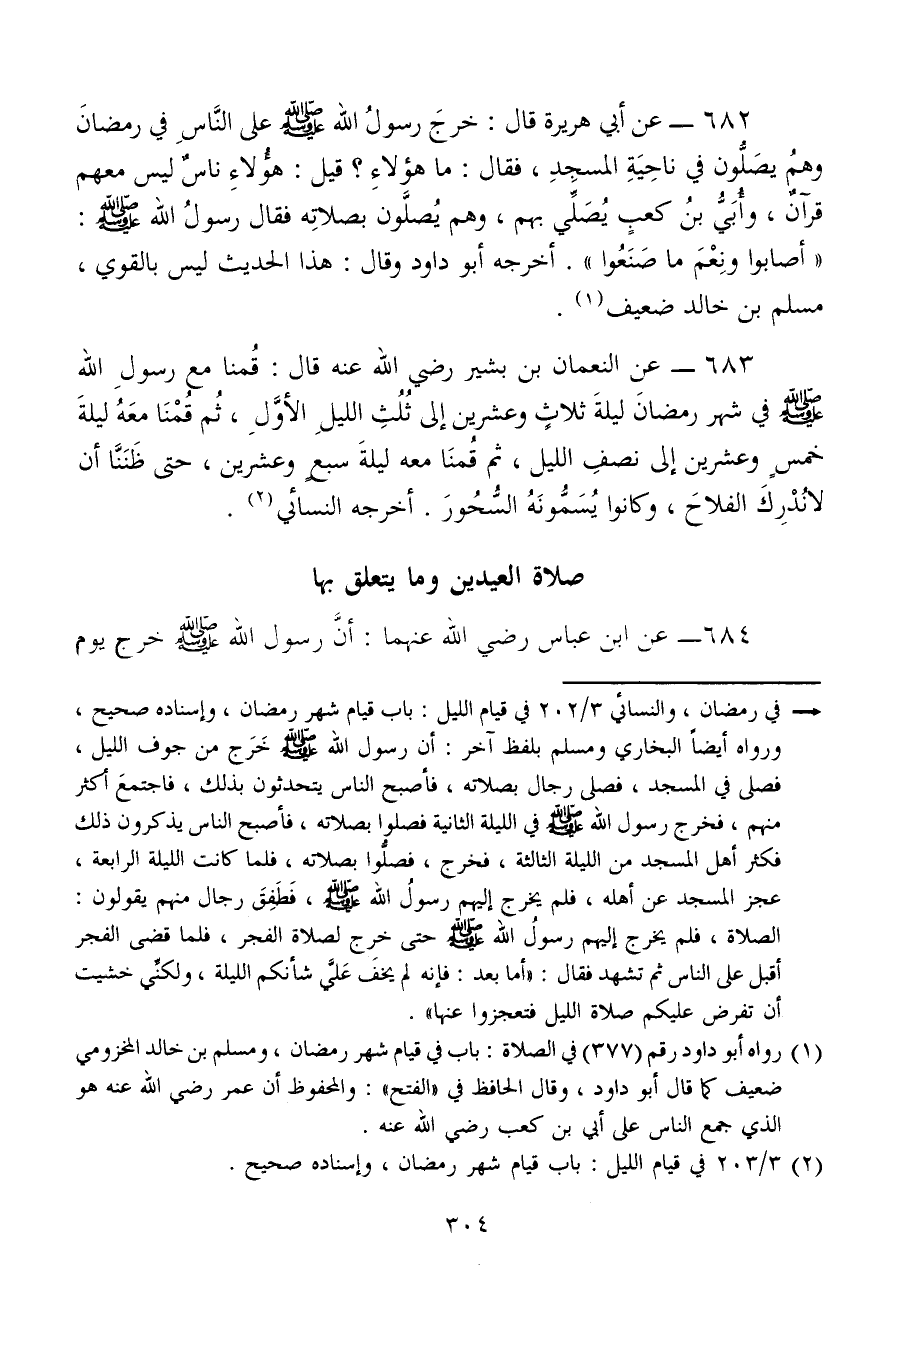 ٦٨٢ ــ عن أبي هريرة قال : خرجَ رسولُ الله ﷺ على النَّاسِ في رمضانَ
وهمُ يصَلُّون في ناحِيَةِ المسجِدِ ، فقال : ما هؤلاءِ ؟ قيل : هؤُلاءِ ناسٌ ليس معهم
قرآنٌ ، وأُبَيُّ بنُ كعبٍ يُصَلِّي بهم ، وهم يُصلَّون بصلاتِه فقال رسولُ الله ﷺ :
« أصابوا ونِعْمَ ما صَنَعُوا » . أخرجه أبو داود وقال : هذا الحديث ليس بالقوي ،
مسلم بن خالد ضعيف(١) .
٦٨٣ ــ عن النعمان بن بشير رضي الله عنه قال : قُمنا مع رسولِ الله
ﷺ في شهر رمضانَ ليلةَ ثلاثٍ وعشرين إلى ثُلُثِ الليلِ الأوَّلِ ، ثُم قُمْنَا معَهُ ليلةَ
خمسٍ وعشرين إلى نصفِ الليل ، ثم قُمنَا معه ليلةَ سبعٍ وعشرين ، حتى ظَنَنَّا أن
لانُدْرِكَ الفلاحَ ، وكانوا يُسَمُّونَهُ السُّحُورَ . أخرجه النسائي(٢) .
صلاة العيدين وما يتعلق بها
٦٨٤ــ عن ابن عباس رضي الله عنهما : أنَّ رسول الله ﷺ خرج يوم
← في رمضان ، والنسائي ٢٠٢/٣ في قيام الليل : باب قيام شهر رمضان ، وإسناده صحيح ،
ورواه أيضاً البخاري ومسلم بلفظ آخر : أن رسول الله ﷺ خَرَج من جوف الليل ،
فصلى في المسجد ، فصلى رجال بصلاته ، فأصبح الناس يتحدثون بذلك ، فاجتمعَ أكثر
منهم ، فخرج رسول الله ﷺ في الليلة الثانية فصلوا بصلاته ، فأصبح الناس يذكرون ذلك
فكثر أهل المسجد من الليلة الثالثة ، فخرج ، فصلُّوا بصلاته ، فلما كانت الليلة الرابعة ،
عجز المسجد عن أهله ، فلم يخرج إليهم رسولُ الله ﷺ ، فَطَفِقَ رجال منهم يقولون :
الصلاة ، فلم يخرج إليهم رسولُ الله ﷺ حتى خرج لصلاة الفجر ، فلما قضى الفجر
أقبل على الناس ثم تشهد فقال : «أما بعد : فإنه لم يخفَ عَليَّ شأنكم الليلة ، ولكنِّي خشيت
أن تفرض عليكم صلاة الليل فتعجزوا عنها» .
(١) رواه أبو داود رقم (٣٧٧) في الصلاة : باب في قيام شهر رمضان ، ومسلم بن خالد المخزومي
ضعيف كما قال أبو داود ، وقال الحافظ في «الفتح» : والمحفوظ أن عمر رضي الله عنه هو
الذي جمع الناس على أبي بن كعب رضي الله عنه .
(٢) ٢٠٣/٣ في قيام الليل : باب قيام شهر رمضان ، وإسناده صحيح .
٣٠٤